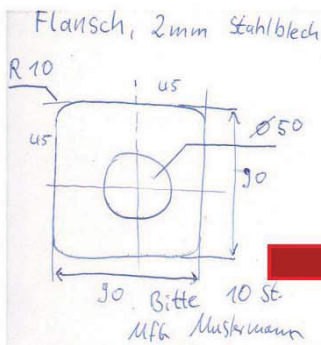 Flansch, 2mm Stahlblech
R10
45
45
Ø50
90
90
Bitte 10 St.
Mfg Mustermann